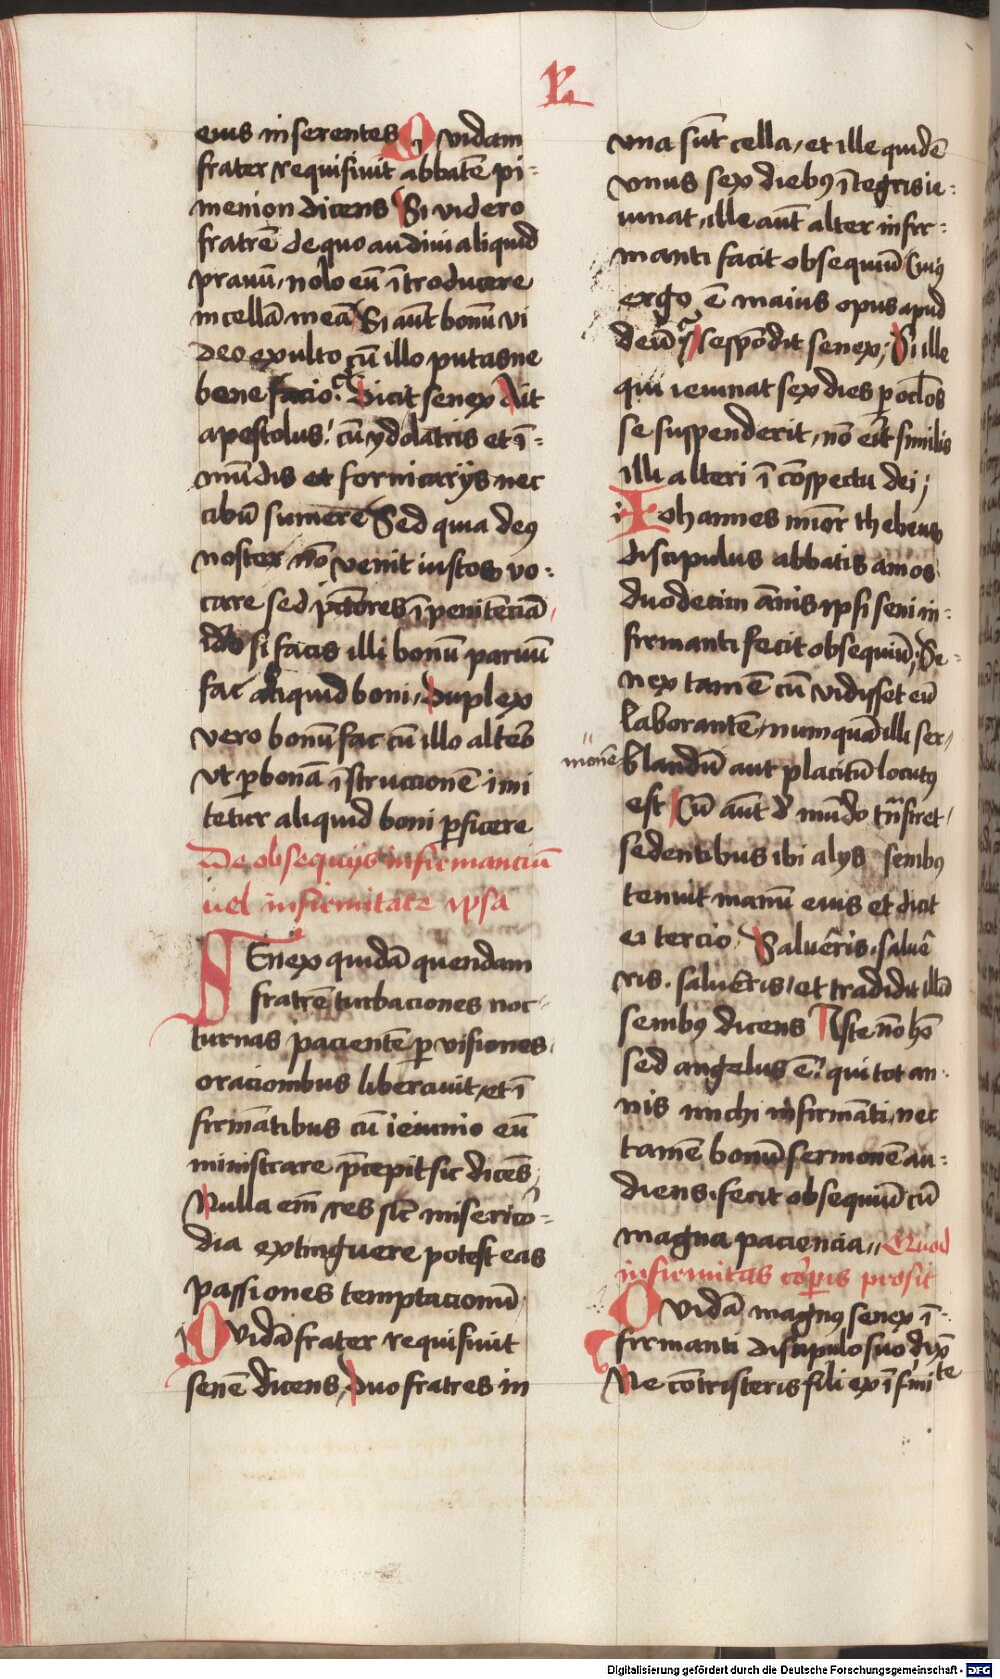 R
eius inserentes Quidam
frater requisiuit abbatē pi-
menion dicens Si videro
fratrē de quo audiui aliquid
prauū, nolo eū ītroducere
in cellā meā Si aūt bonū vi
deo exulto cū illo putasne
bene facio. Dicit senex Ait
apostolus: cū ydolatris et ī-
mūdis et fornicariis nec
cibū sumere Sed quia deꝰ
noster nō venit iustos vo-
care sed pctores ī penitēciā
ido si facis illi bonū paruū
fac aliquid boni, Duplex
vero bonū fac cū illo altero
vt ꝑ bonā īstruccionē imi
tetur aliquid boni ꝑficere
De obsequijs infirmanciū
uel infirmitate ipsa
SEnex quidā quendam
fratrē turbaciones noc-
turnas pacientē ꝑ visiones
oracionibus liberauit, et ī
firmātibus cū ieiunio eū
ministrare p̄cepit sic dicēs
Nulla eīm res sic̄ misericor-
dia extinguere potest eas
passiones temptacionū
Quidā frater requisiuit
senē dicens, Duo fratres in
vna sūt cella, et ille quidē
vnus sex diebꝰ ītegris ie-
iunat, ille aūt alter infir-
manti facit obsequiū Cuiꝰ
ergo ē maius opus apud
deū Respōdit senex; Si ille
qui ieiunat sex dies ꝑ oclos
se suspenderit, nō erit similis
illi alteri ī cōspectu dei;
Iohannes mīor thebeus
discipulus abbatis amos
duodecim annis ipsi seni in-
firmanti fecit obsequiū; Se-
nex tamē cū vidisset eū
laborantē, numquā illi ser-
monē blandū aut placitū locutꝰ
est Cū aūt d mūdo trāsiret,
sedentibus ibi alys senibꝰ
tenuit manū eius et dicit
ei tercio, Salueris, salue
ris, salueris, et tradidit illū
senibꝰ dicens Iste nō hō
sed angelus ē: qui tot an-
nis michi infirmāti, nec
tamē bonū sermonē au-
diens, fecit obsequiū cū
magna paciencia, Quod
infirmitas corꝑis prosit
Quidā magnꝰ senex ī-
firmanti discipulo suo dix̄
Ne cōtristeris fili ex īfirmite
Digitalisierung gefördert durch die Deutsche Forschungsgemeinschaft - DFG